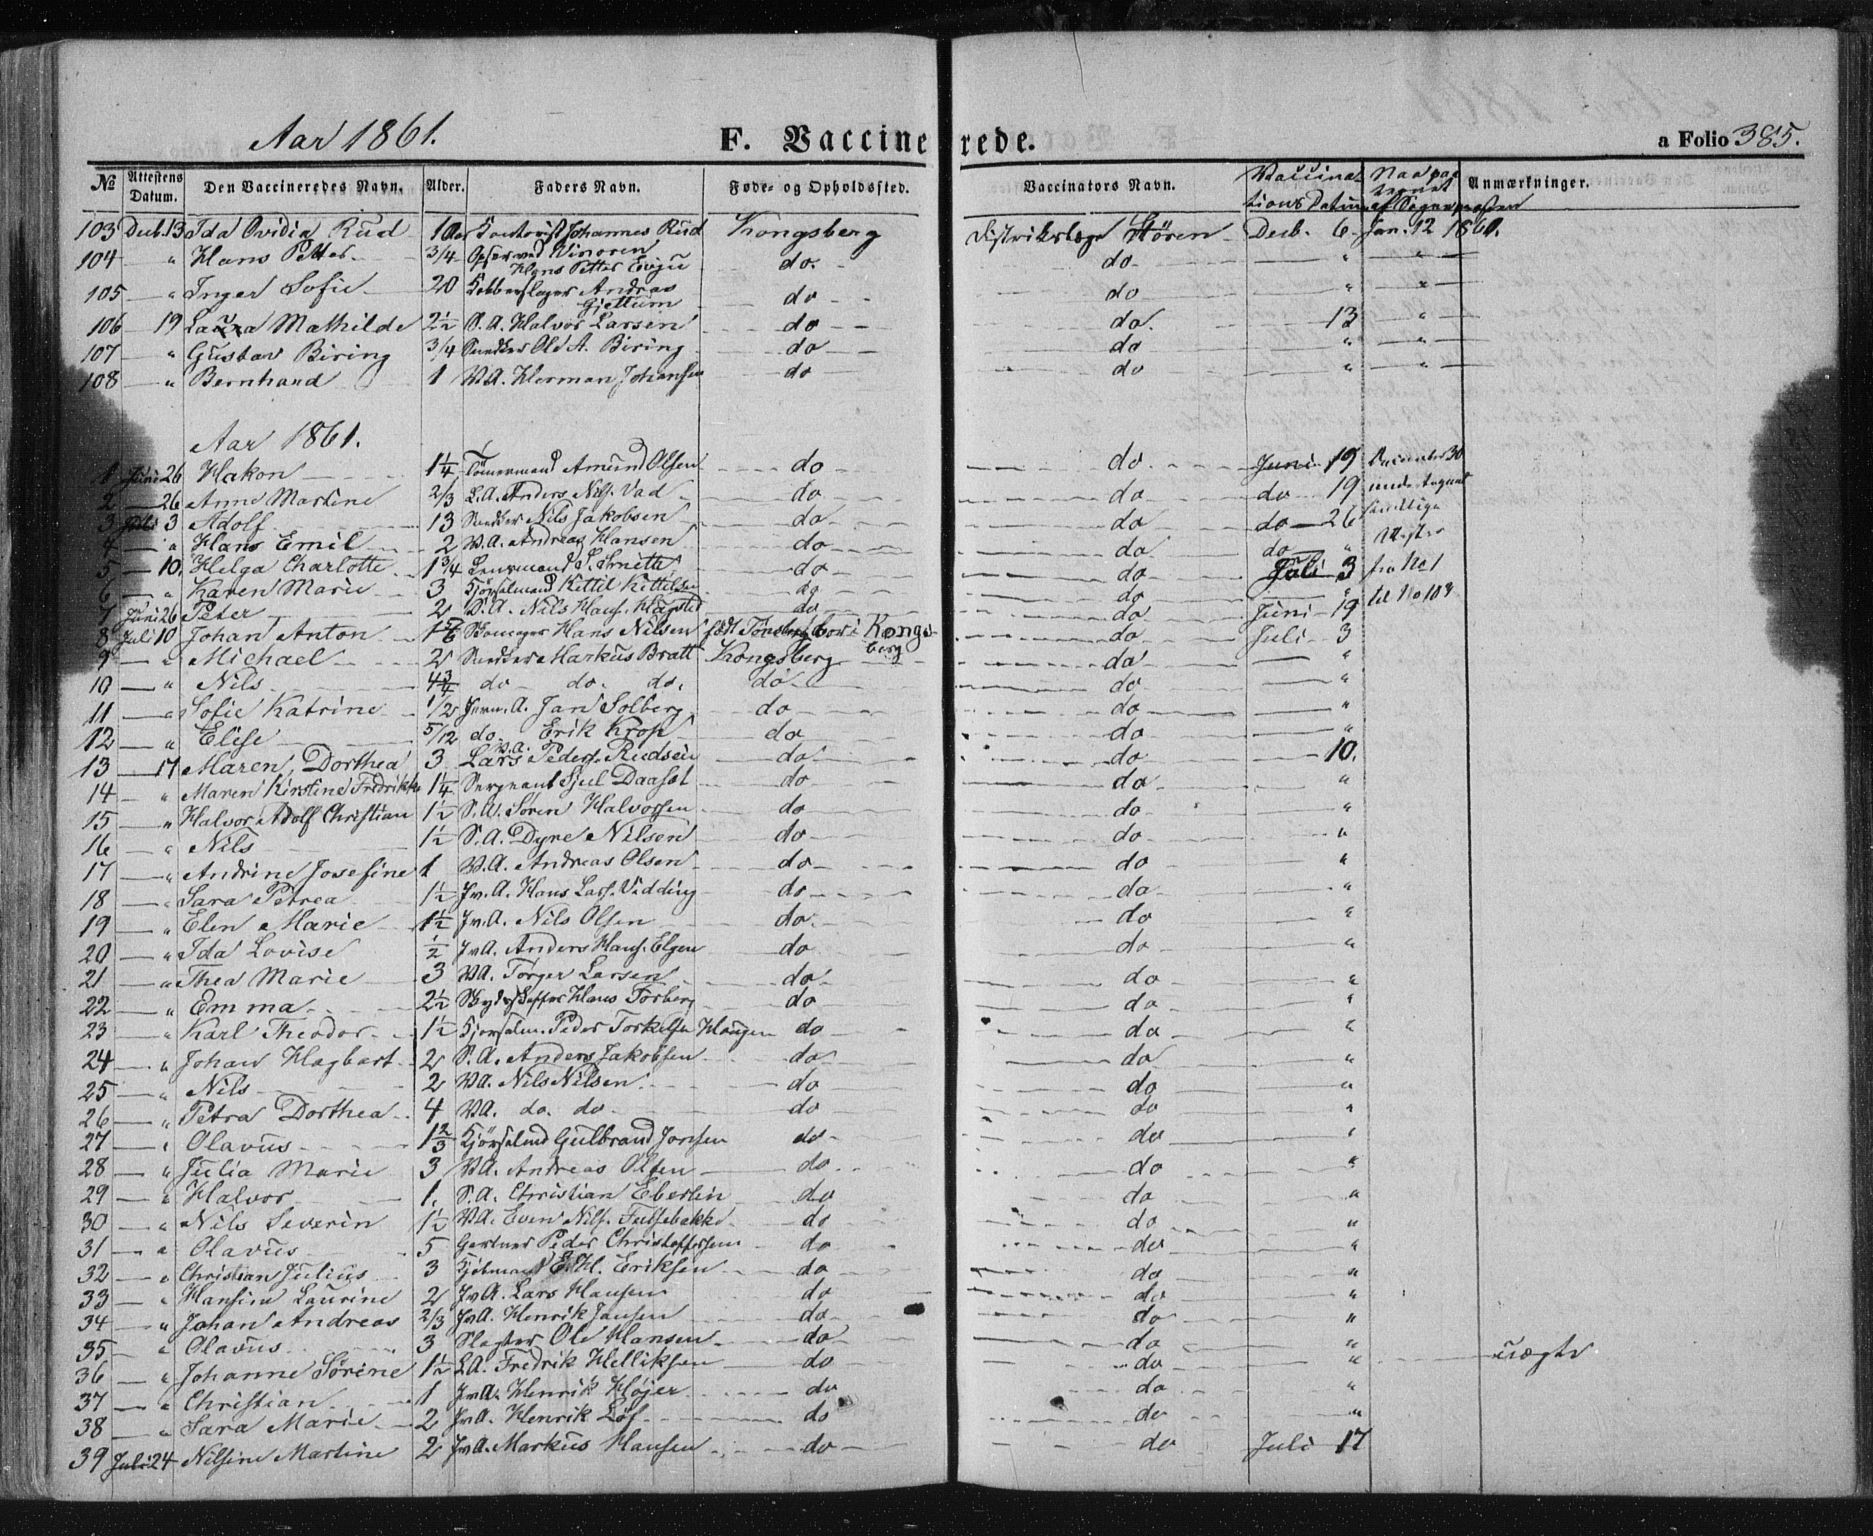 Aar 1861. F. Vaccinerede. a Folio 385.
№ Attestens Datum. Den Vaccineredes Navn. Alder. Faders Navn. Føde- og Opholdssted. Vaccinators Navn. Vaccinationsdatum Anmærkninger.
103 Decb. 13 Ida Ovidia Rud 1 Aar Kontorist Johannes Rud Kongsberg Distriktslæge Støren Decb. 6 Jan. 12 1861.
104 — " Hans Petter 3/4 Opsynsmd Vinoren Hans Petter Evju do. do " "
105 — " Inger Sofie 20 Kobberslager Andreas Gjettum do do " "
106 — 19 Laura Mathilde 2½ S. A. Halvor Larsen do do. 13 "
107 " Gustav Biring 3/4 Snedker Ole A. Biring do do " "
108 — " Bernhard 1 V.A. Herman Johansen do do " "
Aar 1861.
1 Juni 26 Hakon 1¼ Tømermand Amund Olsen do do Juni 19 December 30
2 — 26 Anne Martine 2/3 L.A. Anders Nils. Vad do do do 19 undertegnet
3 Juli 3 Adolf 13 Snedker Nils Jakobsen do do do 26 samtlige
4 — " Hans Emil 2 V.A. Andreas Hansen do do do " Attester
5 — 10. Helga Charlotte 1¾ Lensmand S. Smith do do Juli 3 fra No 1
6 — " Karen Marie 3 Kjørselmand Kittil Kittilsen do do "
7 Juni 26 Peter 2 S.A. Nils Hans. Hagsted do do Juni 19 til No 103
8 Juli 10 Johan Anton 1 5/6 Skomager Hans Nilsen født Tønsberg bor i Kongsberg do Juli 3
9 — " Michael 2 Snedker Markus Bratt Kongsberg do "
10 — " Nils 4¾ do do. do. do do "
11 — " Sofie Katrine 1/2 Jern. A. Jan Solberg do do "
12 — " Elise 5/12 do Erik Krop do do "
13 — 17 Maren Dorthea 3 V.A. Lars Peders. Rudsein do do 10.
14 — " Maren Kirstine Fredrikke 1¼ Sergeant Sjul Daaset do do "
15 — " Halvor Adolf Christian 1½ S.A. Søren Halvorsen do do "
16 — " Nils 1½ S.A. Dyre Nilsen do do "
17 — " Andrine Josefine 1 V.A. Andreas Olsen do do "
18 — " Sara Petrea 1½ Jv.A. Hans Lars. Vidding do do "
19 — " Elen Marie 1½ Jv.A. Nils Olsen do do "
20 — " Ida Lovise ½ Jv.A. Anders Hans. Elgen do do "
21 — " Thea Marie 3 V.A. Torger Larsen do do "
22 — " Emma 2½ Skydsskaffer Hans Torberg do do "
23 — " Karl Theodor 1½ Kjørselm. Peder Torkelsen Haugen do do "
24 — " Johan Hagbart 2 S.A. Anders Jakobsen do do "
25 — " Nils 2 V.A. Nils Nilsen do do "
26 — " Petra Dorthea 4 V.A. do. do do do "
27 — " Olavus 1⅔ Kjørselmd Gulbrand Jonsen do do "
28 — " Julia Marie 3 V.A. Andreas Olsen do do "
29 — " Halvor 1. S.A. Christian Eberlin do do "
30 — " Nils Severin 1½ V.A. Even Nils. Fulsebakke do do "
31 — " Olavus 5 Gartner Peder Christoffersen do do "
32 — " Christian Julius 3 Kjøbmand E. H. Eriksen do do "
33 — " Hansine Laurine 2 Jv.A. Lars Hansen do do "
34 — " Johan Andreas 2/3 Jv.A. Henrik Jansen do do "
35 — " Olavus 3 Slagter Ole Hansen do do "
36 — " Johanne Sørine 1½ L.A. Fredrik Helliksen do do " uægte
37 — " Christian 1 Jv.A. Henrik Højer do do "
38 — " Sara Marie 2 Jv.A. Henrik Løf do do "
39 Juli 24 Nilsine Martine 2 Jv.A. Markus Hansen do do Juli 17